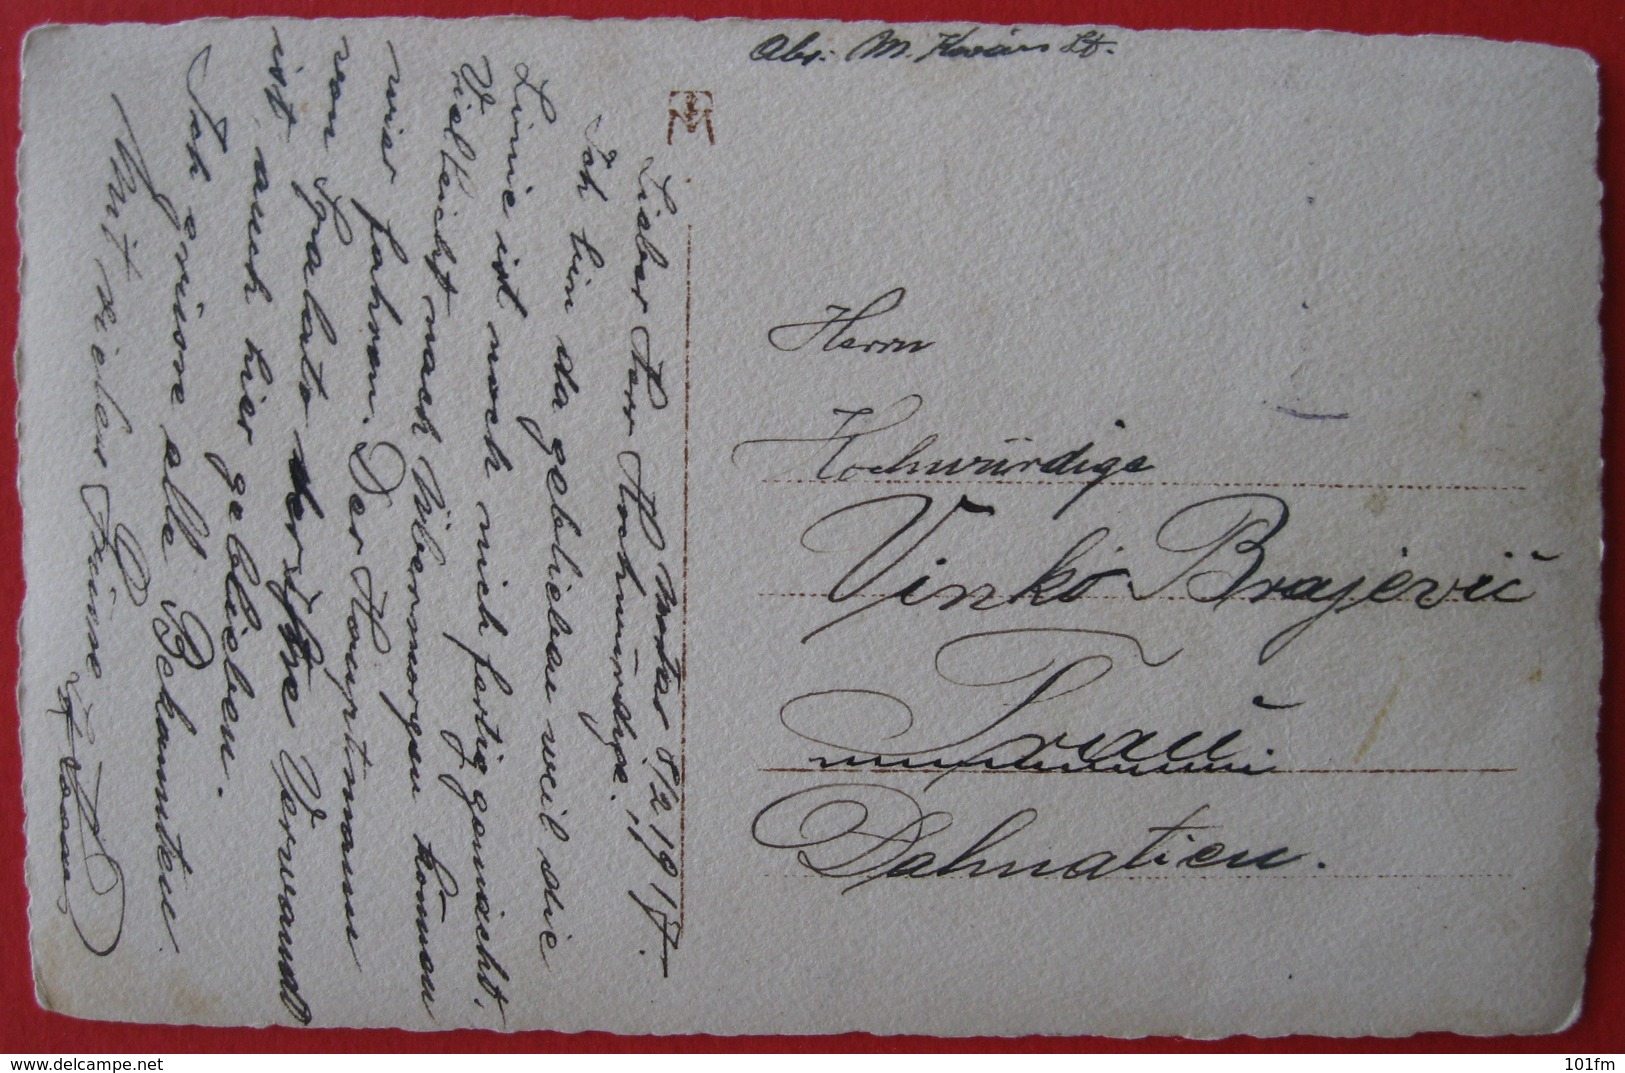 Abs: M. Kovács Lt.
Mostar 8/2 1917.
Lieber Herr Hochwürdige!!
Ich bin da geblieben weil die
Linie ist noch nich fertiggemacht.
Vielleicht nach Übermorgen können
wier fahren. Der Hauptmann
von Spalato der Ihre Verwandt
ist auch hier geblieben.
Ich grüsse alle Bekannten
Mit vielen Grüsse
Herrn
Hochwürdige
Vinko Brajević
Traü
Dalmatien.
101fm